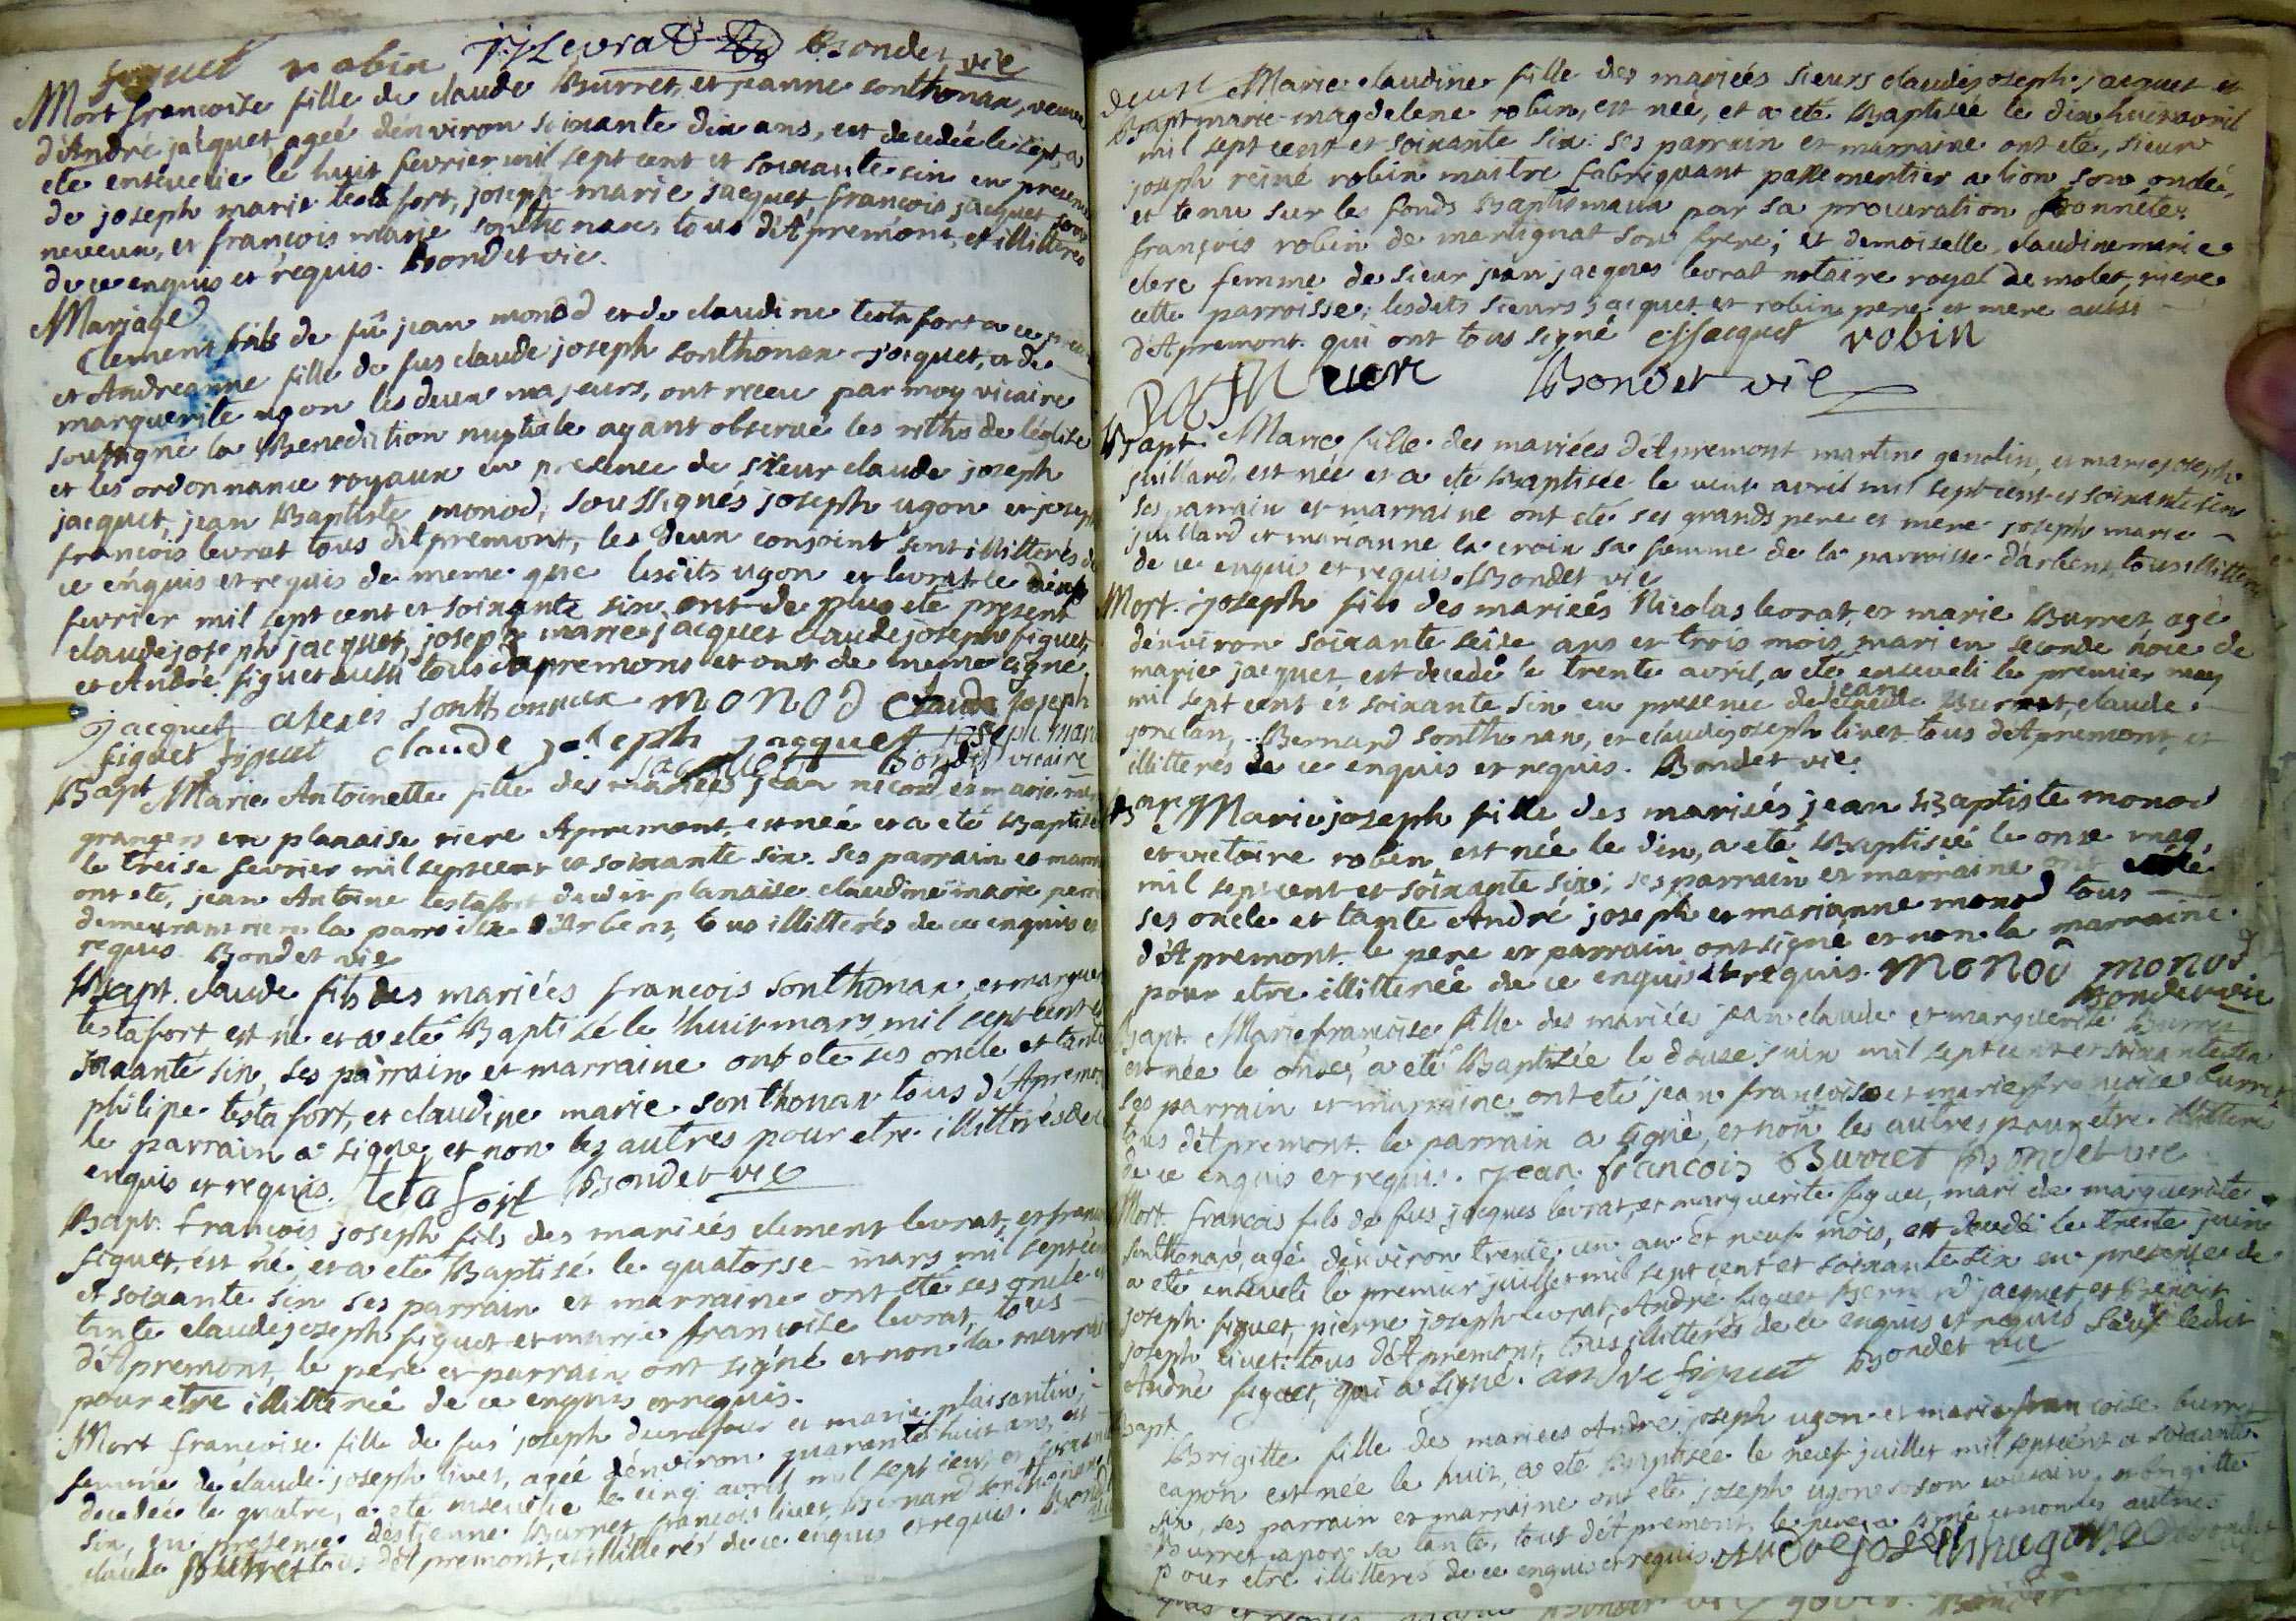 figuet robin JJ Levrat Bondet vie
Mort françoise fille de claude Burret, et jeanne sonthonax, veuve
d'André jacquet, ageé d'environ soixante dix ans, est decedée le sept, a
ete ensevelie le huit fevrier mil sept cent et soixante six en presence
de joseph marie testafort, joseph marie jacquet françois jacquet
neveux, et françois marie sonthonax, tous d'Apremont, et illitteres
de ce enquis et requis. Bondet vic.
Mariage
Clement fils de fû jean monod et de claudine testafort a ce
et Andreanne fille de fus claude joseph sonthonax jacquet, et de
marguerite ugon les deux majeurs, ont receu par moy vicaire
soussigné la Benediction nuptiale ayant observé les riths de l'église
et les ordonnance royaux en presence de sieur claude joseph
jacquet, jean Baptiste monod, soussignés joseph ugon et joseph
françois levrat tous d'Apremont, les deux conjoint sont illitterés de
ce enquis et requis de meme que lesdits ugon et levrat le
fevrier mil sept cent et soixante six ont de plus eté present
claude joseph jacquet, joseph marie jacquet claude joseph figuet,
et André figuet aussi tous d'apremont et ont de meme signé
jacquet alexis sonthonnax monod Claude joseph
figuet figuet claude joseph jacquet joseph marie
jacquet Bondet vicaire
Bapt Marie Antoinette fille des mariées jean nicod et marie
grangers en planaise riere Apremont, est née et a eté Baptisé
le treise fevrier mil sept cent et soixante six. ses parrain et marr
ont ete, jean Antoine testafort dudit planaise claudine marie
demeurant riere la parroisse d'Arbent, tous illitterés de ce enquis et
requis Bondet vie
Bapt. claude fils des mariées françois sonthonax, et marguer
testafort est né et a eté Baptisé le huit mars mil sept cent et
soixante six, ses parrain et marraine ont eté ses oncle et tante
philipe testafort, et claudine marie sonthonax tous d'Apremont
le parrain a signe, et non les autres pour etre illitterés de ce
enquis et requis. testafort Bondet vie
Bapt. françois joseph fils des mariées clement levrat, et françoise
figuet, est né, et a eté Baptisé le quatorse mars mil sept cent
et soixante six ses parrain et marraine ont eté ses oncle et
tante claude joseph figuet et marie françoise levrat, tous
d'Apremont, le pere et parrain ont signé et non la marraine
pour etre illitterée de ce enquis et requis.
Mort françoise fille de fus joseph durafour et marie plaisantin,
femme de claude joseph livet, agée d'environ quarante huit ans, est
decedée le quatre, a eté ensevelie le cinq avril mil sept cent et soixante
six, en presence d'estienne Burret, françois livet, Bernard sonthonax
claude Burret tous d'Apremont, et illitterés de ce enquis et requis. Bondet
Marie claudine fille des mariées sieurs claude joseph jacquet et
Bapt marie magdelene robin, est née, et a eté Baptisée le dix huit avril
mil sept cent et soixante six: ses parrain et marraine ont eté, sieur
joseph reiné robin maitre fabriquant passementier a lion son oncle,
et tenu sur les fonds Baptismaux par sa procuration honnéte
françois robin de martignat son frere; et demoiselle claudine marie
clerc femme de sieur jean jacques levrat notaire royal de molet, riere
cette parroisse; lesdits sieurs jacquet et robin pere et mere aussi
d'Apremont. qui ont tous signé cjjacquet robin
Bondet vie
Bapt. Marie fille des mariées d'Apremont martin genolin, et marie joseph
juillard, est née et a eté Baptisée le vint avril mil sept cent et soixante six
ses parrain et marraine ont eté ses grands pere et mere joseph marie
juillard et marianne la croix sa femme de la parroisse d'arbent, tous illitterés
de ce enquis et requis. Bondet vie
Mort. joseph fils des mariées Nicolas levrat, et marie Burret, agé
d'environ soixante seise ans et trois mois, mari en seconde nôce de
marie jacquet, est decedé le trente avril, a eté enseveli le premier may
mil sept cent et soixante six en presence de jean Burret, claude
Bernard sonthonax, et claude joseph livet tous d'Apremont, et
illitterés de ce enquis et requis. Bondet vie.
Bapt Marie joseph fille des mariées jean Baptiste monod
et victoire robin est née le dix, a eté Baptiseé le onze may
mil sept cent et soixante six; ses parrain et marraine ont eté
ses oncle et tante André joseph et marianne monod tous
d'Apremont. le pere et parrain ont signé et non la marraine.
pour etre illitterée de ce enquis et requis. monod monod
Bondet vie
Bapt. Marie françoise fille des mariées jean claude et marguerite Burret
est née le onse, a eté Baptisée le douse juin mil sept cent et soixante six
ses parrain et marraine ont eté jean françois et marie françoise burret
tous d'Apremont. le parrain a signé, et non les autres pour etre illitteré
de ce enquis et requis. Jean francois Burret Bondet vie
Mort. francois fils de fus jacques levrat, et marguerite figuet, mari de marguerite
sonthonax, agé d'environ trente un an et neuf mois, est decedé le trente juin
a eté enseveli le premier juillet mil sept cent et soixante six en presence de
joseph figuet, pierre joseph levrat, André figuet Bernard jacquet et Benoit
joseph livet tous d'Apremont, tous illitterés de ce enquis et requis sauf ledit
André figuet, qui a signé. andre figuet Bondet vie
Bapt
Brigitte fille des mariées André joseph ugon et marie françoise burret
capon est née le huit, a eté Baptisée le neuf juillet mil sept cent et soixante
six, ses parrain et marraine ont eté joseph ugon son cousin, et brigitte
Burret capon sa tante, tout d'Apremont, le pere a signé et non les autres
pour etre illitterés de ce enquis et requis. Andre joseph hugon Bondet